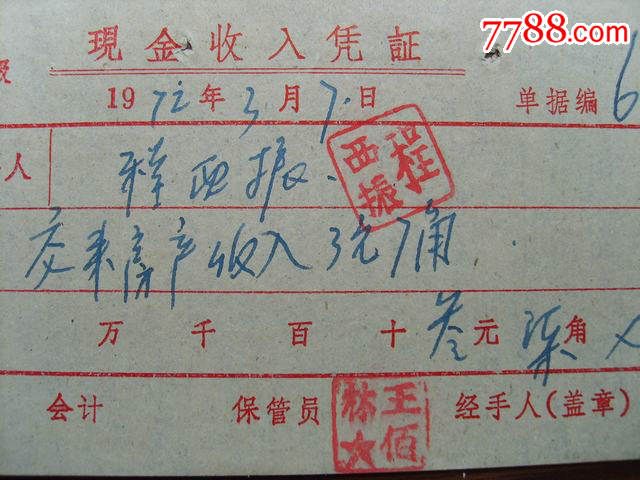 7788.com
現金收入凭証
1972年3月7日
单据编 6
人 程西振
程西振
交来房产收入3元7角
万 千 百 十 叁元 柒角
会计 保管员 经手人(盖章)
王佰林